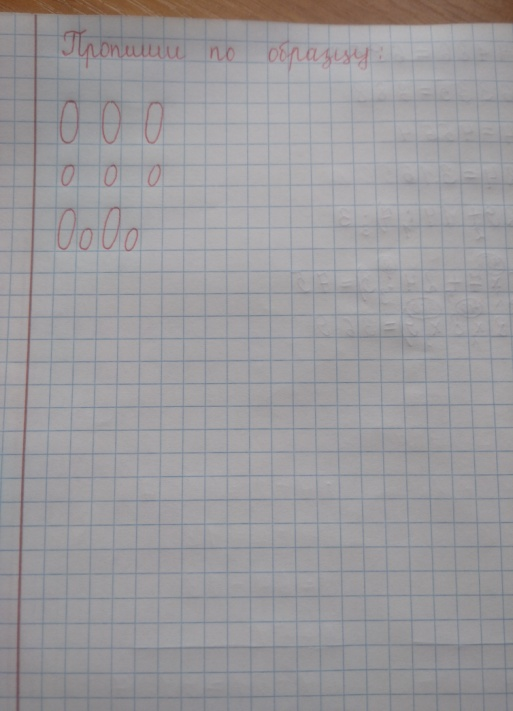 Пропиши по образцу:
О О О
о о о
ОоОо